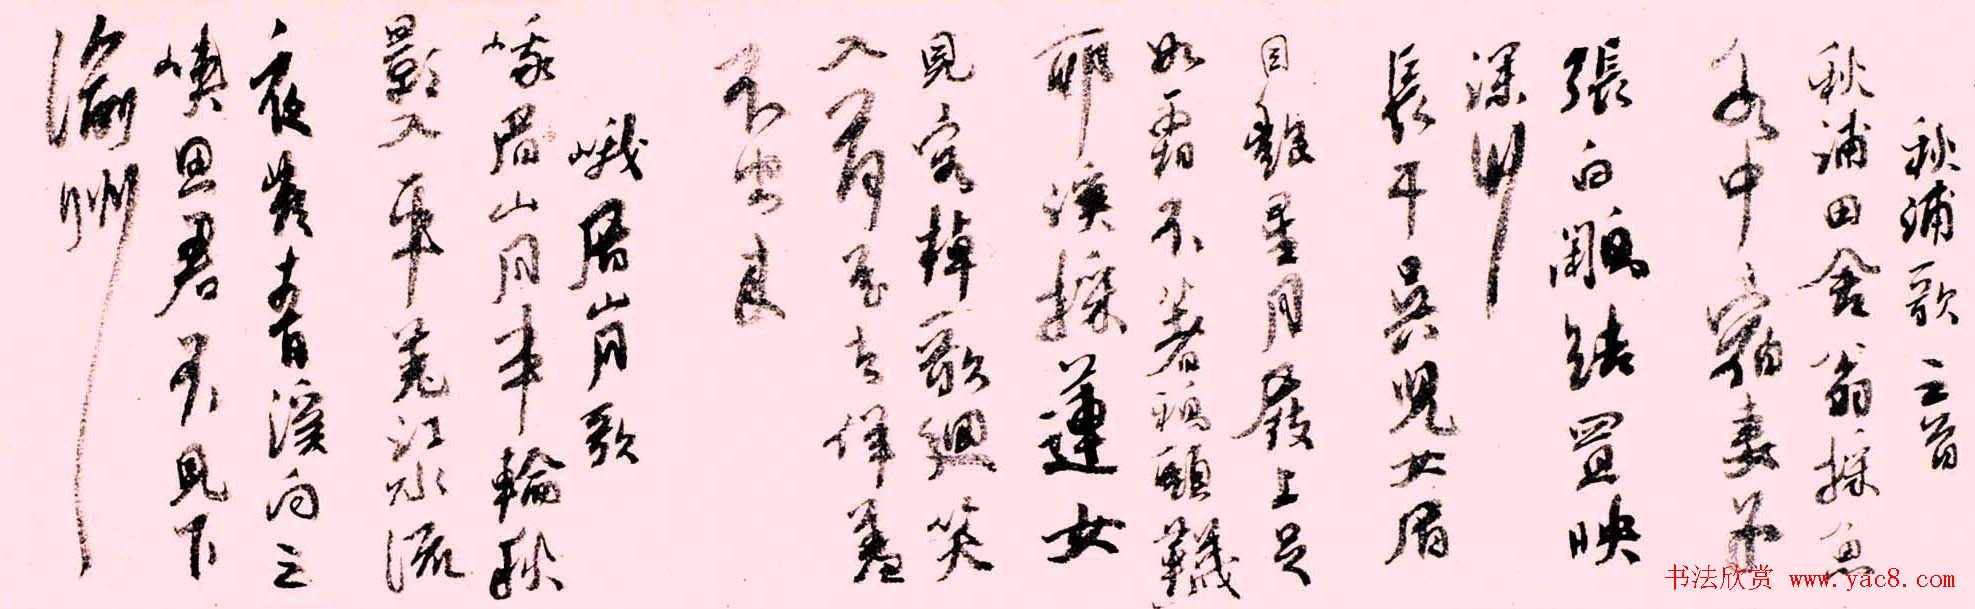 秋浦歌三首
秋浦田舍翁採魚
水中宿妻子
張白鷴結罝映
深竹
長干吳兒女眉
目豔星月屐上足
如霜不著鴉頭韈
耶溪採蓮女
見客棹歌迴笑
入荷花去佯羞
不出來
峨眉山月歌
峨眉山月半輪秋
影入平羌江水流
夜發青溪向三
峽思君不見下
渝州
书法欣赏 www.yac8.com